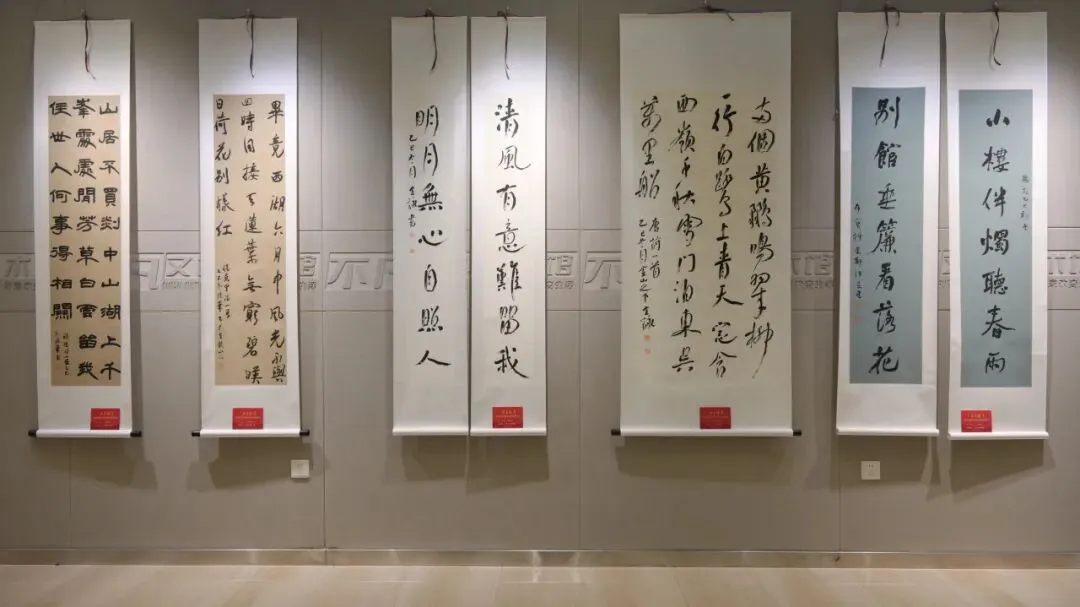 小樓伴燭聽春雨
別館垂簾看落花
両個黃鸝鳴翠柳
一行白鷺上青天窓含
西嶺千秋雪門泊東吳
萬里船
唐詩一首
乙巳冬月
清風有意難留我
明月無心自照人
乙巳冬月
畢竟西湖六月中風光不與
四時同接天蓮葉無窮碧暎
日荷花別樣紅
山居不買剡中山湖上千
峯處處聞芳草白雲留我
住世人何事得相關